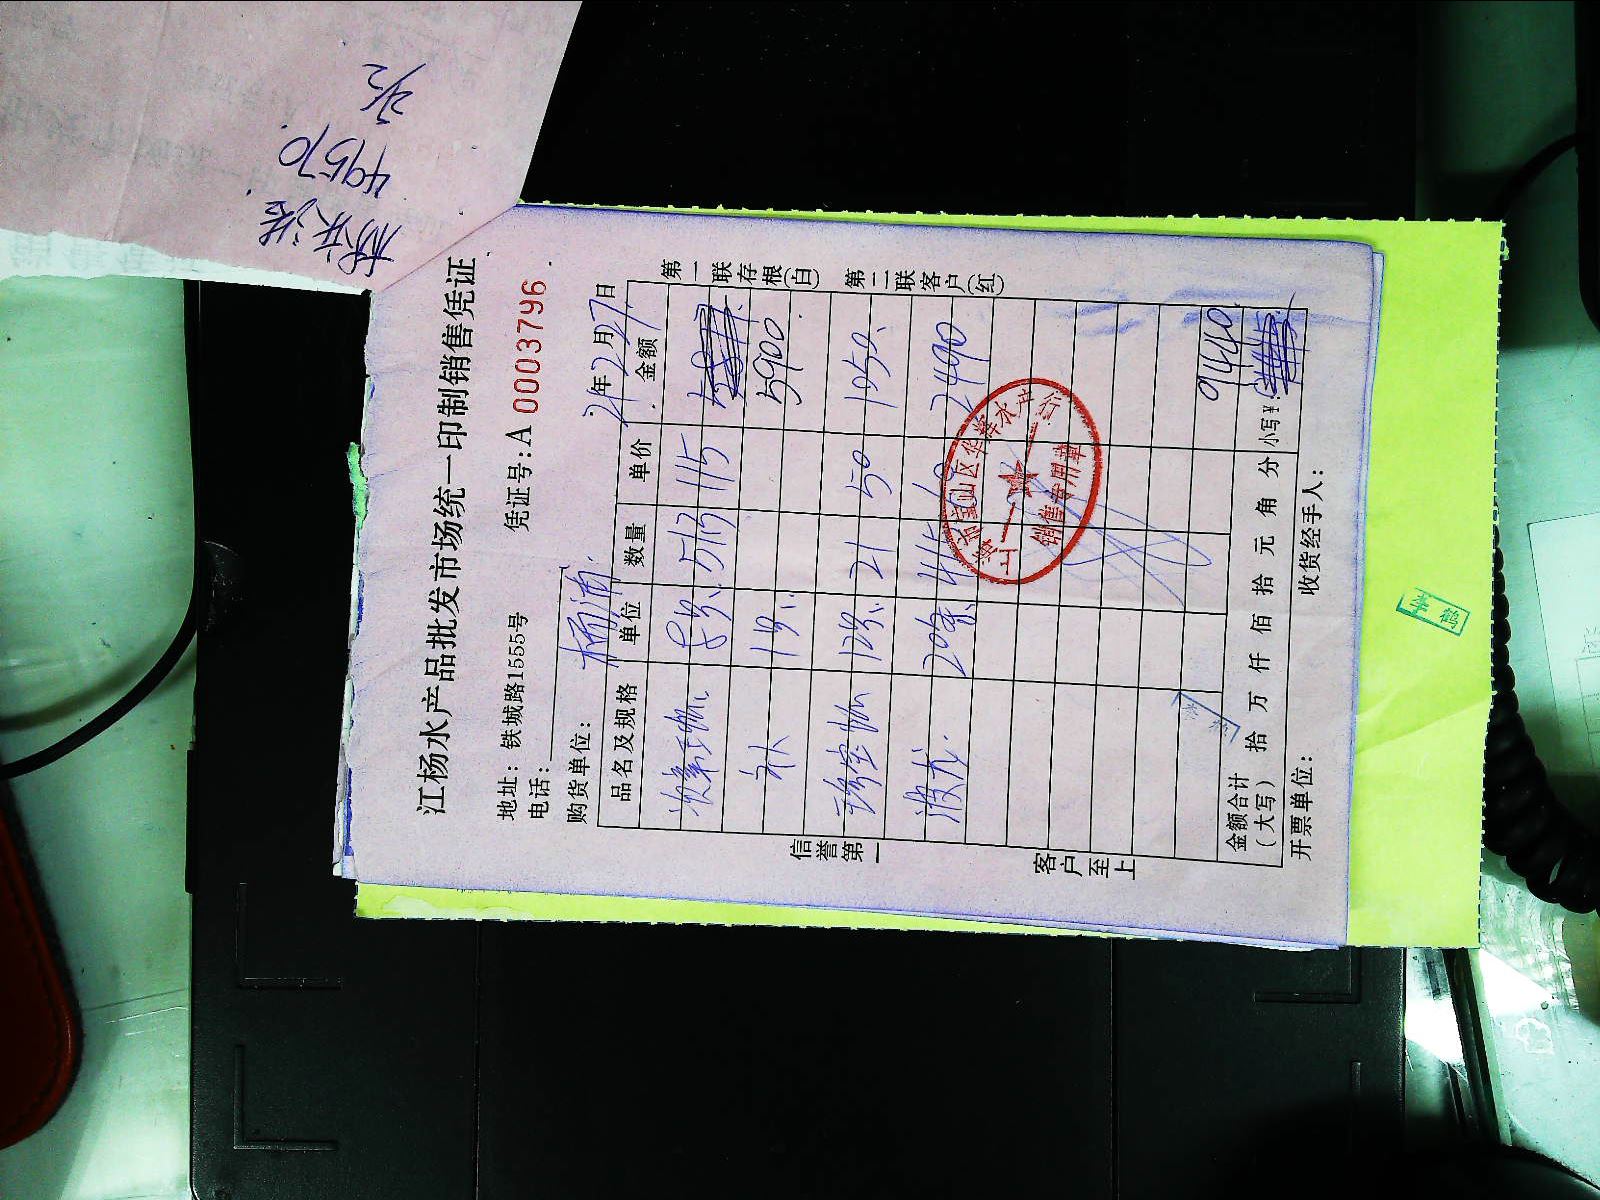 49570
江杨水产品批发市场统一印制销售凭证
地址：铁城路1555号
凭证号：A 0003796
电话：
购货单位：杨浦
21年2月27日
品名及规格 单位 数量 单价 金额
8只 513 115
补 1只 5900
12只 21 50 1050
波龙 20条 2490
9440
金额合计（大写） 拾 万 仟 佰 拾 元 角 分 小写¥：
开票单位：
收货经手人：
第一联存根（白）
第二联客户（红）
信誉第一
客户至上
上海市宝山区华辉水产行
销售专用章